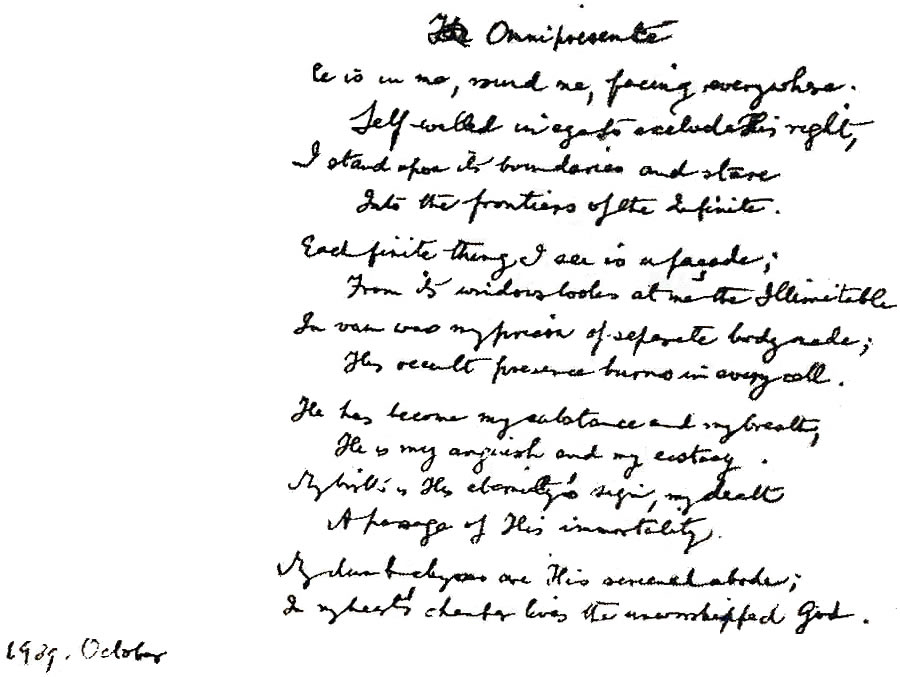 Omnipresence
He is in me, round me, facing everywhere.
Self-walled in ego to exclude His right,
I stand upon its boundaries and stare
Into the frontiers of the Infinite.
Each finite thing I see is a façade;
From its windows looks at me the Illimitable
In vain was my prison of separate body made;
His occult presence burns in every cell.
He has become my substance and my breath;
He is my anguish and my ecstasy.
My birth is His eternity's sign, my death
A passage of His immortality.
My dumb abysses are His screened abode;
In my heart's chamber lives the unworshipped God.
1939. October